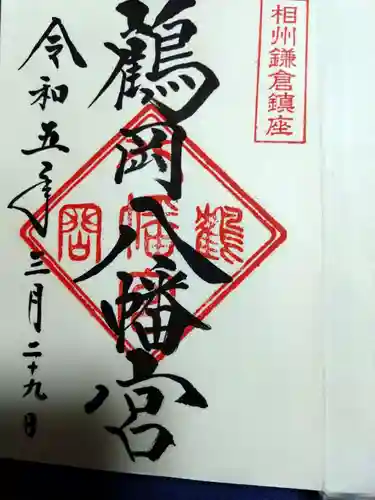 相州鎌倉鎮座
鶴岡八幡宮
令和五年三月二十九日